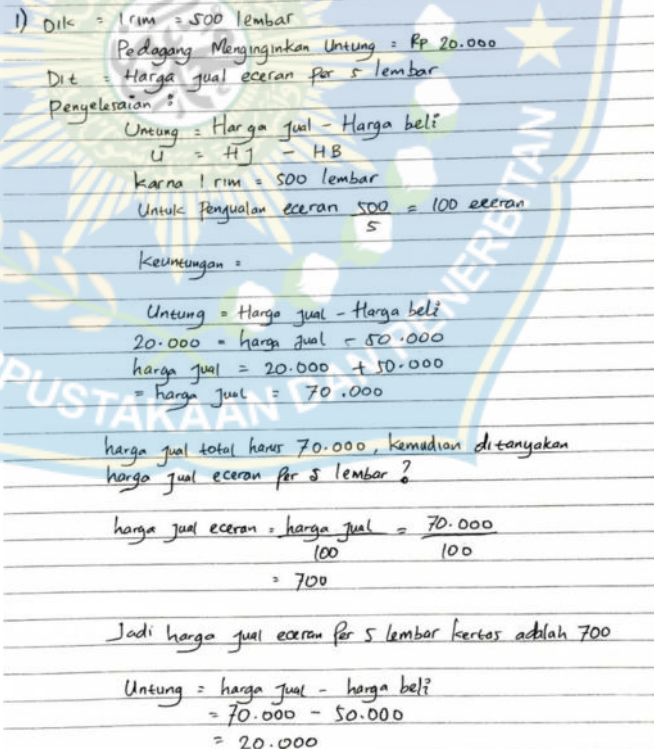 1) Dik = 1 rim = 500 lembar
Pedagang Menginginkan Untung = Rp 20.000
Dit = Harga jual eceran per 5 lembar
Penyelesaian :
Untung = Harga jual - Harga beli
U = HJ - HB
Karna 1 rim = 500 lembar
Untuk Penjualan eceran 500/5 = 100 eceran
Keuntungan =
Untung = Harga jual - Harga beli
20.000 = harga jual - 50.000
harga jual = 20.000 + 50.000
= harga jual = 70.000
PUSTAKAAN DAN PENERBIT
harga jual total harus 70.000, kemudian ditanyakan
harga jual eceran per 5 lembar ?
harga jual eceran = harga jual/100 = 70.000/100
= 700
Jadi harga jual eceran per 5 lembar kertas adalah 700
Untung = harga jual - harga beli
= 70.000 - 50.000
= 20.000